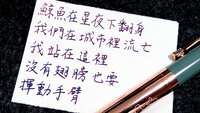 鯨魚在星夜下翻身
我們在城市裡流亡
我站在這裡
沒有翅膀也要
揮動手臂